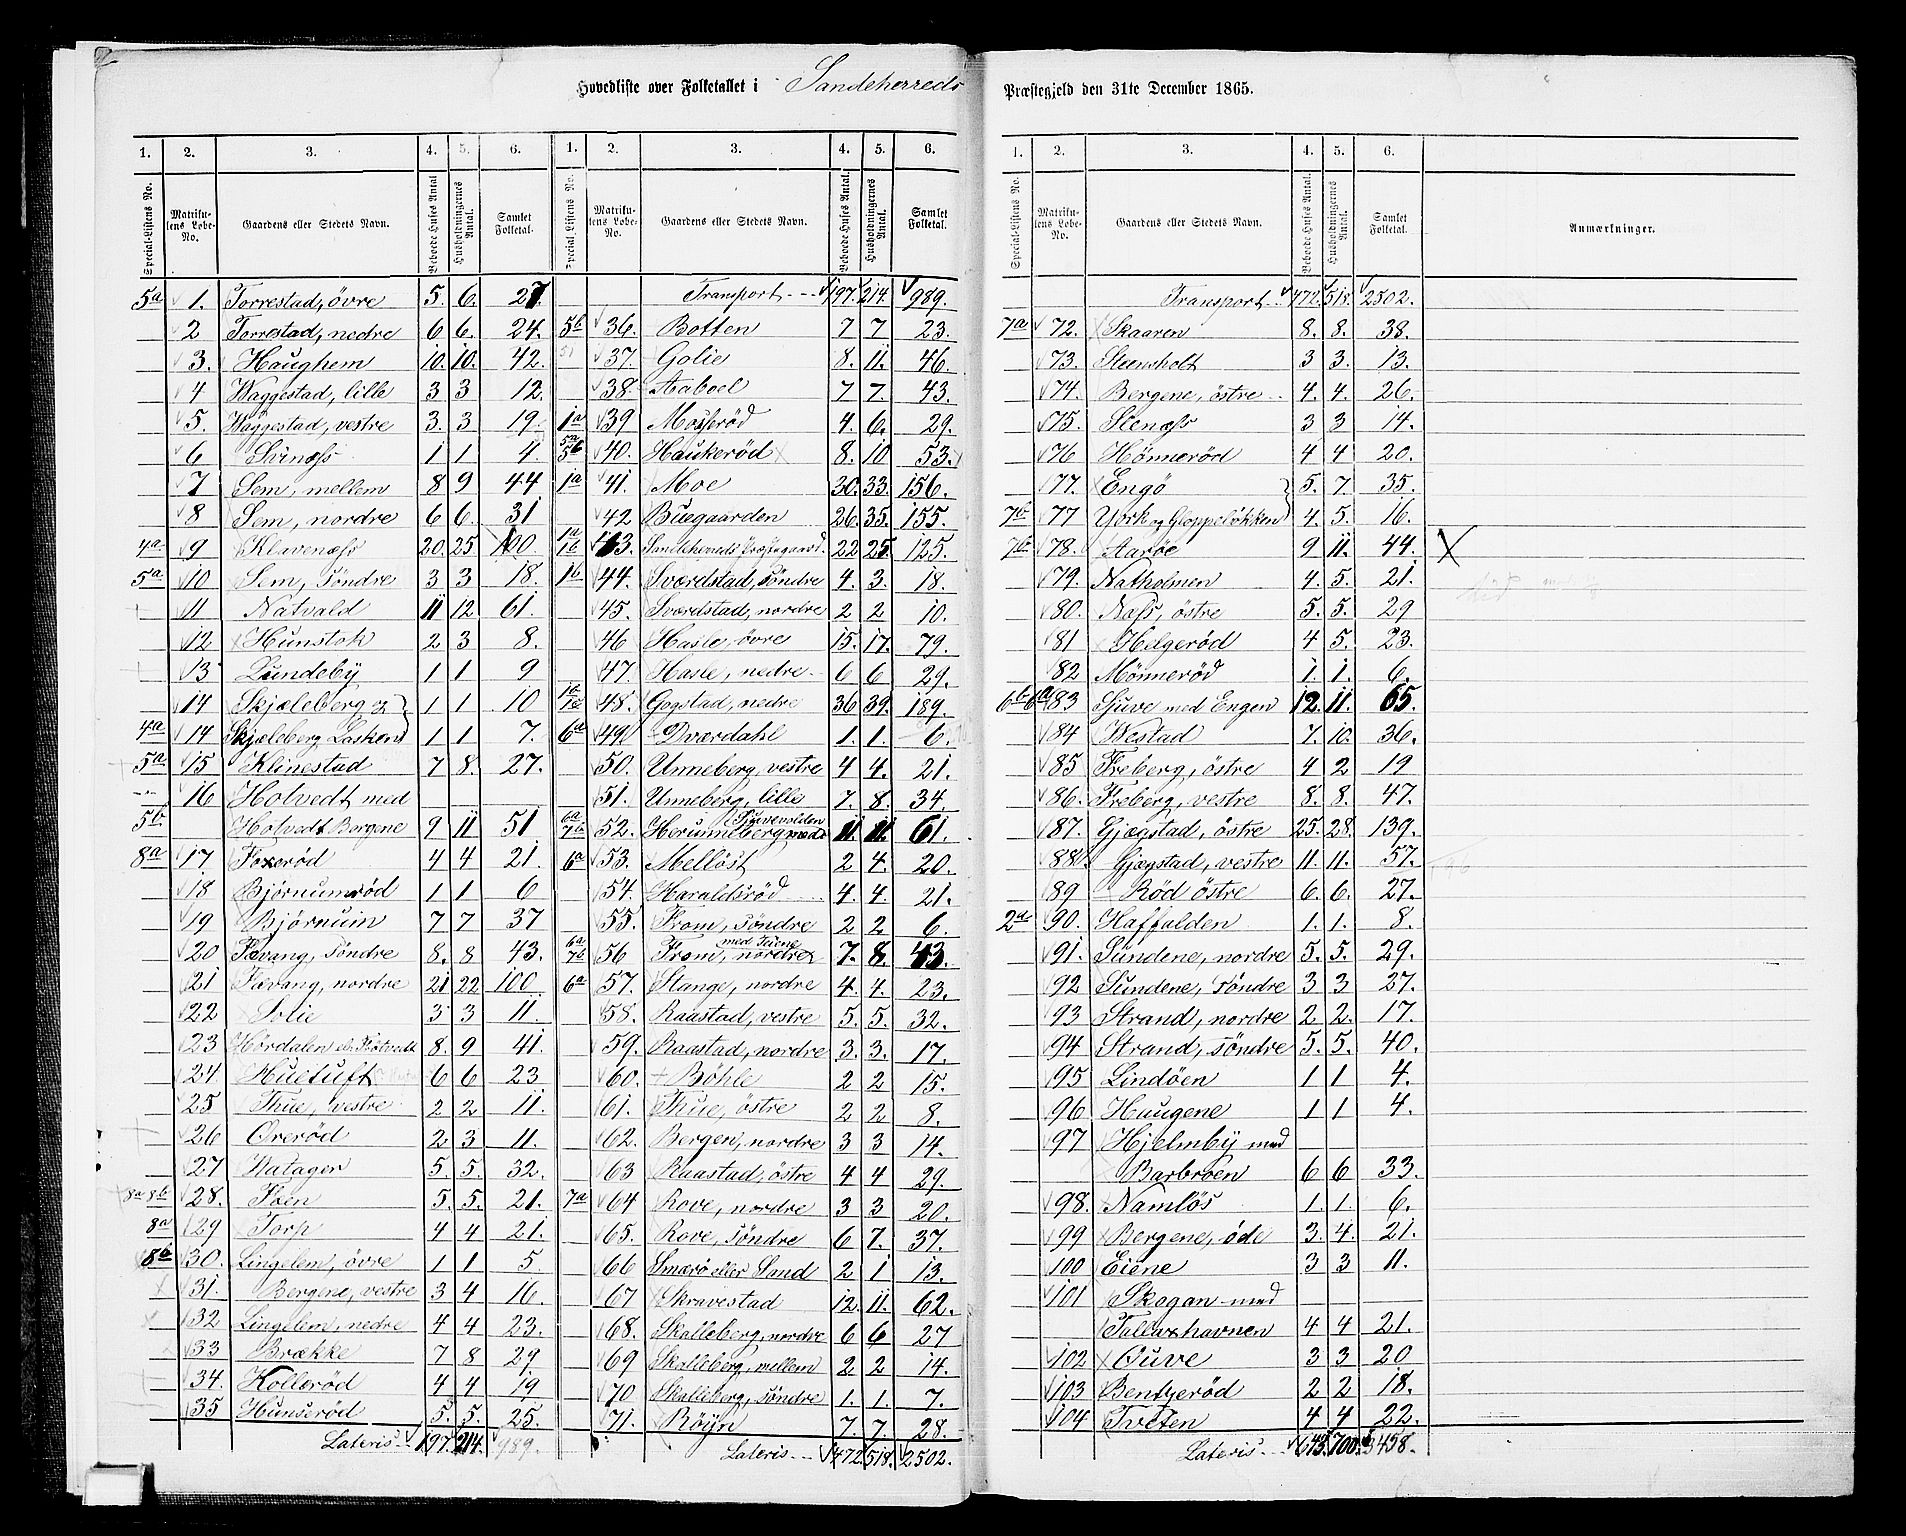 Hovedliste over Folketallet i Sandeherreds
1. 2. 3. 4. 5. 6. 1. 2. 3. 4. 5. 6.
Special-Listens No. Matrikulens Løbe-No. Gaardens eller Stedets Navn. Beboede Huses Antal Husholdningernes Antal. Samlet Folketal. Special Listens No. Matrikulens Løbe-No. Gaardens eller Stedets Navn. Beboede Huses Antal. Husholdningernes Antal. Samlet Folketal.
5a 1. Torrestad, övre 5. 6. 27
2 Torrestad, nedre 6 6. 24.
3. Haughem 10. 10. 42.
4 Waggestad, lille 3 3 12.
5. Waggestad, vestre 3. 3 19.
6 Svinæss 1 1 4.
7 Sem, mellem 8 9 44
8 Sem, nordre 6 6. 31
4a 9 Klavenæss 20. 25 100.
5a 10 Sem, söndre 3 3 18.
11 Natvald 11 12 61.
12 Hunstok 2 3 8.
13 Lundeby 1 1 9
14 Skjæleberg og 1 1 10
4a 14 Skjæleberg Lasken 1 1 7.
5a 15 Klinestad 7 8. 27.
16 Holvedt med
5b Holvedt Bergene 9 11 51
8a 17. Foxerød 4 4 21.
18 Bjørnumrød 1 1 6
19 Bjørnum 7 7 37
20 Fævang, söndre 8. 8 43.
21 Fævang, nordre 21 22 100.
22 Solie 3 3 11.
23 Hørdalen el. Skötvedt 8. 9 41.
24 Huetuft 6 6 23
25 Thue, vestre 2 2 11.
26 Ørerød 2 3 11.
27 Watager 5. 5. 32.
8a 8b 28. Foen 5. 5. 21.
8a 29 Torp 4 4 21.
8b 30. Lingelem, övre 1 1 5
31. Bergene, vestre 3 4 16.
32 Lingelem, nedre 4 4 23.
33 Brække 7 8 29
34. Hollerød 4 4 19
35 Hunserød 5. 5. 25.
Lateris 197. 214. 989.
Transport 197. 214. 989.
5b 36. Botten 7 7 23.
37. Golie 8. 11. 46.
38. Aaboel 7 7. 43.
1a 39 Mosserød 4. 6. 29.
5a 5b 40. Haukerød 8. 10 53.
1a 41. Moe 30. 33. 156.
42 Buegaarden 26. 35. 155.
1a 1b 43. Sandeherreds Præstegaard 22 25. 125.
1b 44. Sværdstad, söndre 4. 3. 18.
45. Sværdstad, nordre 2 2 10.
46 Hasle, övre 15. 17. 79.
47. Hasle, nedre 6 6 29.
48. Gogstad, nedre 36 39. 189.
6a 49. Dværdahl 1. 1. 6.
50. Unneberg, vestre 4 4. 21.
51. Unneberg, lille 7. 8. 34.
6a 7b 52. Horunneberg med Sjuevolden 11. 11. 61.
6a 53. Mellöst 2 4. 20.
54. Haraldsrød 4. 4. 21.
55. From, söndre 2 2 6.
6a 7b 56 From, nordre med Teiene 7. 8. 43.
6a 57. Stange, nordre 4. 4. 23.
58. Raastad, vestre 5. 5. 32.
59. Raastad, nordre 3. 3. 17.
60. Böhle 2 2 15.
61. Thue, östre 2 2 8.
62. Bergen, nordre 3 3 14.
63 Raastad, östre 4 4 29.
7a 64 Rove, nordre 3 3 20.
65. Rove, söndre 6 7. 37.
66 Smærö eller Sand 2 1 13.
67 Skravestad 12. 11. 62.
68. Skolleberg, nordre 6 6 27
69 Skolleberg, mellem 2 2 14.
70. Skolleberg, söndre 1. 1. 7.
71. Röijn 7. 7. 28.
Lateris 472 518. 2502.
Præstegjeld den 31te December 1865.
1. 2. 3. 4. 5. 6.
Special-Listens No. Matrikulens Løbe-No. Gaardens eller Stedets Navn. Beboede Huses Antal. Husholdningernes Antal. Samlet Folketal. Anmærkninger.
Transport 472. 518. 2502.
7a 72. Skaaren 8. 8. 38.
73. Steensholt 3 3. 13.
74. Bergene, östre 4. 4. 26.
75. Stenæss 3 3 14.
76 Hönnerød 4 4 20.
77. Engö 5. 7. 35.
7b 77 York og Gloppelökken 4. 5. 16.
7b 78. Aaröe 9 11. 44. X
79. Natholmen 4. 5. 21.
80. Næss, östre 5. 5. 29
81 Helgerød 4 5. 23.
82 Mönnerød 1. 1. 6.
6b 6a 83 Sjuve med Engen 12. 11. 65.
84 Westad 7. 10. 36.
85 Freberg, östre 4 2 19
86. Freberg, vestre 8. 8. 47.
87. Gjægstad, östre 25. 28. 139.
88. Gjægstad, vestre 11. 11. 57.
89 Rød östre 6. 6. 27.
2a 90. Haffalden 1. 1. 8.
91. Sundene, nordre 5. 5. 29.
92 Sundene, söndre 3 3 27.
93 Strand, nordre 2 2. 17.
94 Strand, söndre 5. 5. 40.
95 Lindöen 1 1 4.
96 Haugene 1 1 4.
97 Hjelmby med
Barbroen 6 6 33.
98. Namlös 1. 1. 6.
99 Bergene, öde 3. 4. 21.
100 Eiene 3 3 11.
101 Skogan med
Tallaxhavnen 4 4 21.
102 Ouve 3 3 20
103 Bentzerød 2 2 18.
104 Tveten 4 4 22.
Lateris 643. 700. 3458.